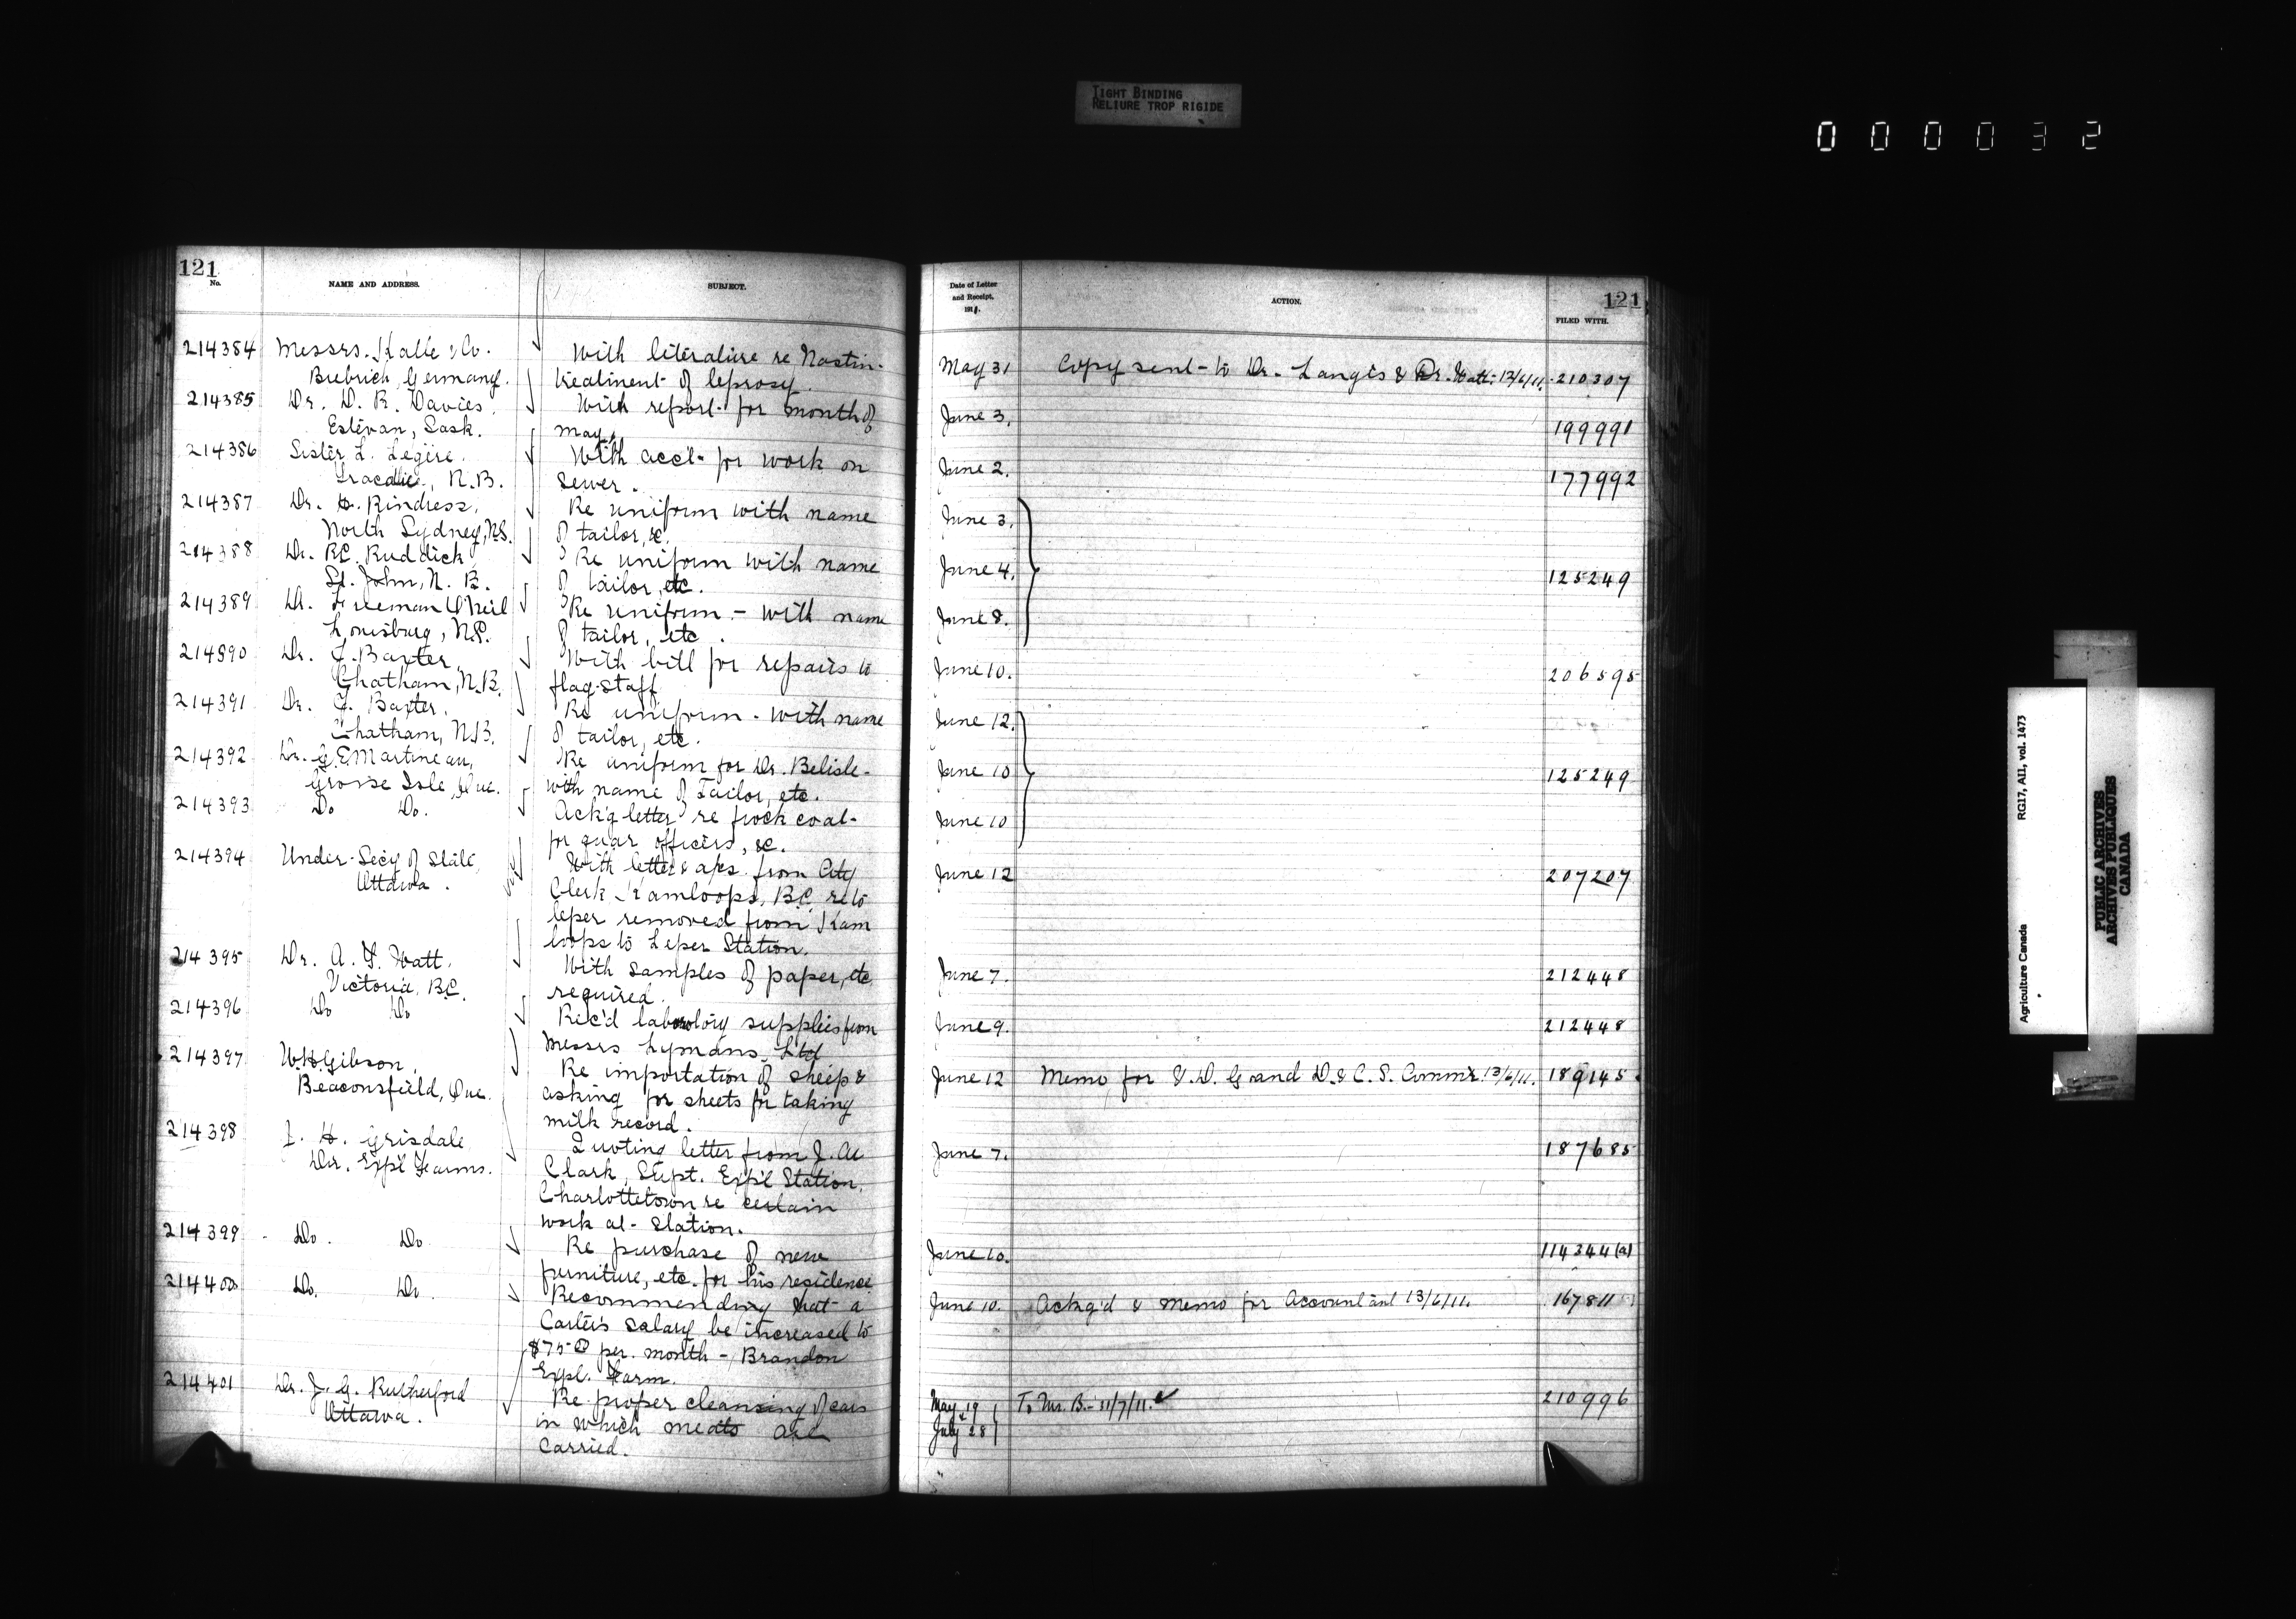 TIGHT BINDING
RELIURE TROP RIGIDE
000032
121
No.
NAME AND ADDRESS.
SUBJECT.
214384 Messrs. Kalle & Co. With literature re Nastin-
Biebrich, Germany. treatment of leprosy.
214385 Dr. D. R. Davies. With report for month of
Estevan, Sask. May.
214386 Sister L. Legère. With acct. for work on
Tracadie, N.B. sewer.
214387 Dr. H. Rindress, Re uniform with name
North Sydney, N.S. of tailor, &c.
214388 Dr. RC. Ruddick Re uniform with name
St. John, N.B. of tailor, etc.
214389 Dr. Freeman O'Neil Re uniform - with name
Louisburg, N.S. of tailor, etc.
214390 Dr. J. Baxter, With bill for repairs to
Chatham, N.B. flag-staff
214391 Dr. J. Baxter, Re uniform - with name
Chatham, N.B. of tailor, etc.
214392 Dr. G.E Martineau, Re uniform for Dr. Belisle-
Grosse Isle, Que. with name of Tailor, etc.
214393 Do Do. Ack'g letter re frock coat-
for quar officers, &c.
214394 Under-Secy of State, With letter & aps. from City
Ottawa. Clerk Kamloops, B.C. re to
leper removed from Kam
loops to Leper Station.
214395 Dr. A. T. Watt, With samples of paper, etc
Victoria, B.C. required.
214396 Do Do Rec'd laboratory supplies from
Messrs Lymans, Ltd
214397 W.H. Gibson, Re importation of sheep &
Beaconsfield, Que. asking for sheets for taking
milk record.
214398 J. H. Grisdale Quoting letter from J. A
Dir. Exp'l Farms. Clark, Supt. Exp'l Station,
Charlottetown re certain
work at station.
214399 Do. Do Re purchase of new
furniture, etc. for his residence
214400 Do. Do Recommending that a
Carter's salary be increased to
$75 00 per. month - Brandon
Expl. Farm.
214401 Dr. J. G. Rutherford Re proper cleansing of cars
Ottawa. in which meats are
carried.
Date of Letter
and Receipt,
1911.
ACTION.
121
FILED WITH.
May 31 Copy sent to Dr. Langis & Dr. Watt. 13/6/11. 210307
June 3. 199991
June 2. 177992
June 3.
June 4. 125249
June 8.
June 10. 206595
June 12.
June 10 125249
June 10
June 12 207207
June 7. 212448
June 9. 212448
June 12 Memo for V. D. G and D. & C. S. Commr. 13/6/11. 189145
June 7. 187685
June 10. 114344(a)
June 10. Ackg'd & memo for Accountant 13/6/11. 167811
May 19 To Mr. B. - 31/7/11. 210996
&
July 28
Agriculture Canada RG17, AI1, vol. 1473
PUBLIC ARCHIVES
ARCHIVES PUBLIQUES
CANADA